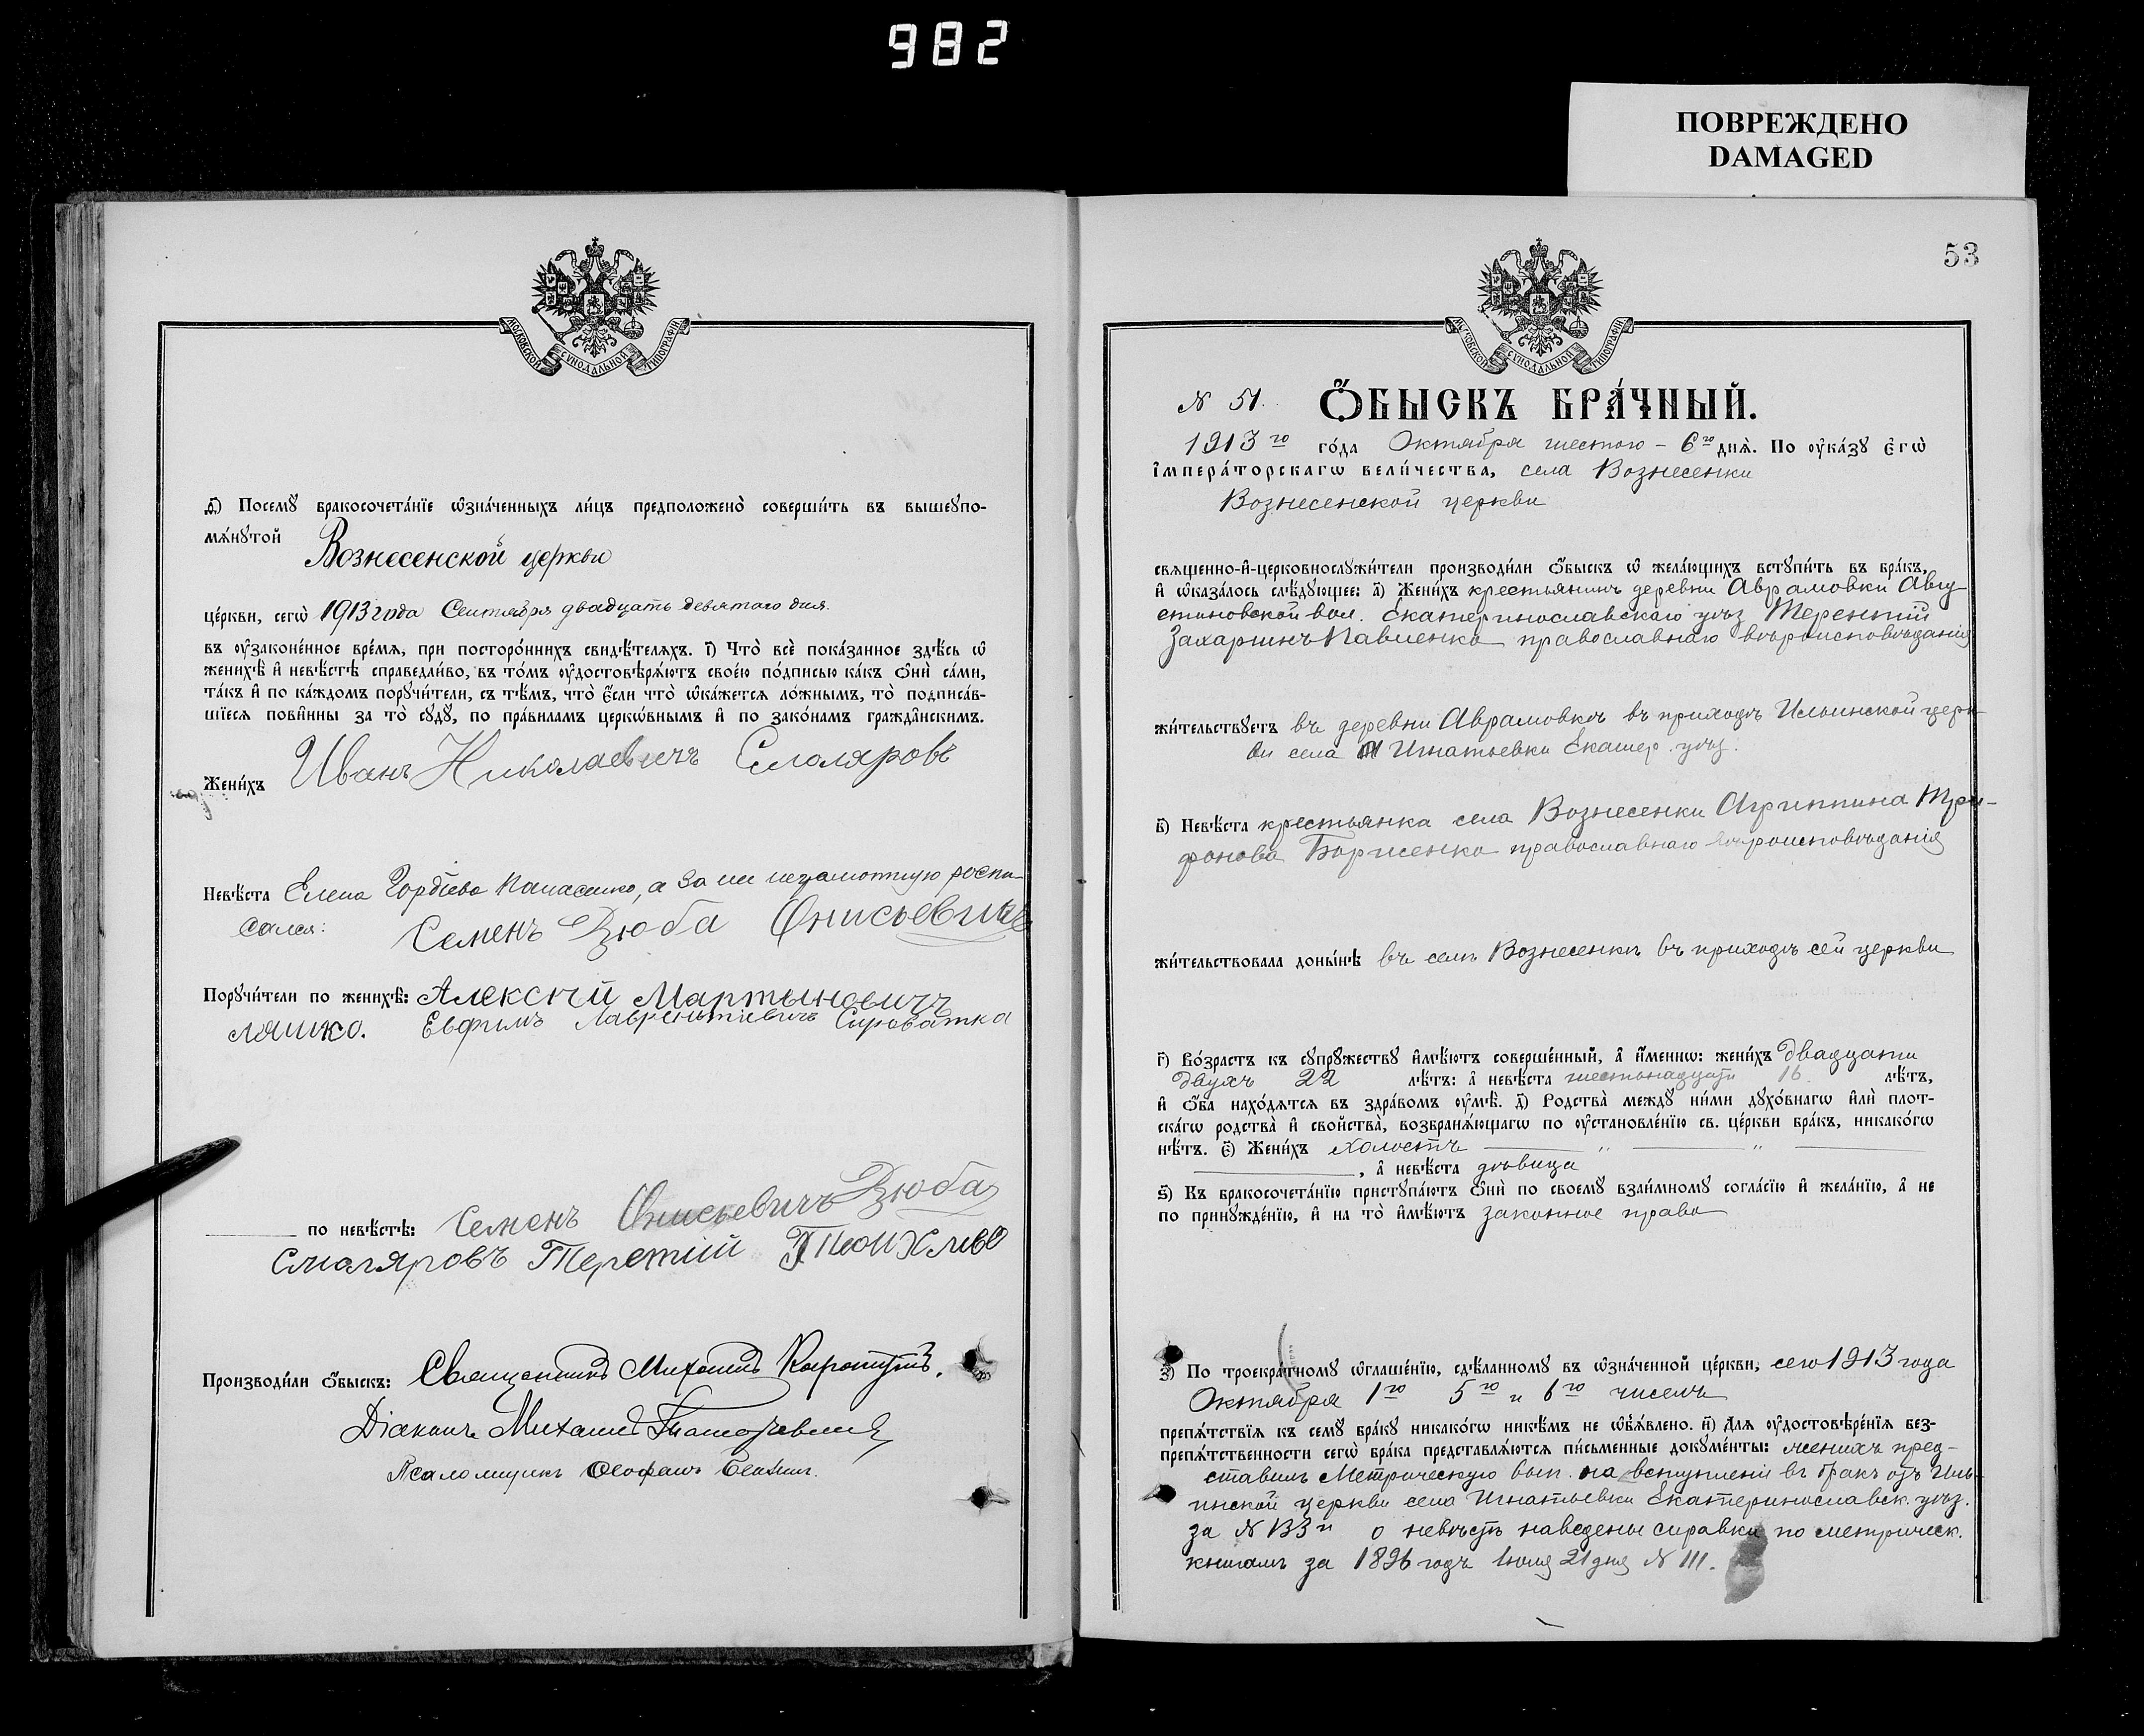 982
ПОВРЕЖДЕНО
DAMAGED
МОСКОВСКОЙ СѴНОДАЛЬНОЙ ТИПОГРАФІИ
д҃і) Посемꙋ бракосочета́нїе ѡ҆зна́ченныхъ ли́цъ предположено̀ соверши́ть въ вышеꙋпо-
мѧ́нꙋтой
Вознесенской церкви
це́ркви, сегѡ̀ 1913 года Сентября двадцать девятаго дня.
въ ᲂу҆зако́ненное вре́мѧ, при посторо́ннихъ свидѣ́телѧхъ. і҃) Что̀ всѐ пока́занное здѣ́сь ѡ҆
женихѣ̀ и҆ невѣ́стѣ справедли́во, въ то́мъ ᲂу҆достовѣрѧ́ютъ свое́ю по́дписью ка́къ ѻ҆нѝ са́ми,
та́къ и҆ по ка́ждомъ порꙋчи́тели, съ тѣ́мъ, что̀ є҆́сли что̀ ѡ҆ка́жетсѧ ло́жнымъ, то̀ подписа́в-
шїесѧ пови́нны за то̀ сꙋдꙋ̀, по пра́виламъ церко́внымъ и҆ по зако́намъ гражда́нскимъ.
Жени́хъ Иванъ Николаевичъ Смоляровъ
Невѣ́ста Елена Гордіева Панасенко, а за ней неграмотную роспи-
сался: Семенъ Дзюба Онисьевичъ
Порꙋчи́тели по женихѣ̀: Алексѣй Мартыновичъ
Ляшко. Евфимъ Лаврентіевичъ Сироватка
по невѣ́стѣ: Семенъ Онисьевичъ Дзюба
Смаляровъ Теретій
Производи́ли ѻ҆́быскъ: Священникъ Михаилъ
Діаконъ Михаилъ
Псаломщикъ Ѳеофанъ
53
МОСКОВСКОЙ СѴНОДАЛЬНОЙ ТИПОГРАФІИ
N 51. Ѻ҆́БЫСКЪ БРА́ЧНЫЙ.
1913 го го́да Октября шестого – 6 го днѧ̀. По ᲂу҆ка́зꙋ є҆гѡ̀
і҆мпера́торскагѡ вели́чества, села Вознесенки
Вознесенской церкви
свѧще́нно-и҆-церковнослꙋжи́тели производи́ли ѻ҆́быскъ ѡ҆ жела́ющихъ встꙋпи́ть въ бра́къ,
и҆ ѡ҆каза́лось слѣ́дꙋющее: а҃) Жени́хъ крестьянинъ деревни Аврамовки Авгу
стиновской вол. Екатеринославскаго уѣз Терентій
Захаринъ Павленко православнаго вѣроисповѣданія
жи́тельствꙋетъ въ деревни Аврамовкѣ въ приходѣ Ильинской церк-
ви села Игнатьевки Екатер. уѣз.
в҃) Невѣ́ста крестьянка села Вознесенки Агриппина Три-
фонова Борисенко православнаго вѣроисповѣданія
жи́тельствовала доны́нѣ въ селѣ Вознесенкѣ въ приходѣ сей церкви
г҃) Во́зрастъ къ сꙋпрꙋ́жествꙋ и҆мѣ́ютъ соверше́нный, а҆ и҆́меннѡ: жени́хъ двадцати
двухъ 22 лѣ́тъ: а҆ невѣ́ста шестьнадцати 16. лѣ́тъ,
и҆ ѻ҆́ба нахо́дѧтсѧ въ здра́вомъ ᲂу҆мѣ̀. д҃) Родства̀ междꙋ ни́ми дꙋхо́внагѡ и҆лѝ плот-
ска́гѡ родства̀ и҆ сво́йства, возбранѧ́ющагѡ по ᲂу҆становле́нїю св. це́ркви бра́къ, никако́гѡ
нѣ́тъ. є҃) Жени́хъ холостъ
, а҆ невѣ́ста дѣвица
ѕ҃) Къ бракосочета́нїю пристꙋпа́ютъ ѻ҆нѝ по своемꙋ̀ взаи́мномꙋ согла́сїю и҆ жела́нїю, а҆ не
по принꙋжде́нїю, и҆ на то̀ и҆мѣ́ютъ законное право
з҃) По троекра́тномꙋ ѡ҆глаше́нїю, сдѣ́ланномꙋ въ ѡ҆зна́ченной це́ркви, сего 1913 года
Октября 1го 5го и 6го чиселъ
препѧ́тствїѧ къ семꙋ̀ бра́кꙋ никако́гѡ никѣ́мъ не ѡ҆б̾ѧ́влено. и҃) Длѧ ᲂу҆достовѣре́нїѧ без-
препѧ́тственности сегѡ̀ бра́ка представлѧ́ютсѧ пи́сьменные докꙋме́нты: женихъ пред-
ставилъ Метрическую вып. на вступленіе въ бракъ отъ Иль-
инской церкви села Игнатьевки Екатеринославск. уѣз.
за N 133 и о невѣстѣ наведены справки по метрическ.
книгамъ за 1896 годъ Іюля 21 дня N 111.